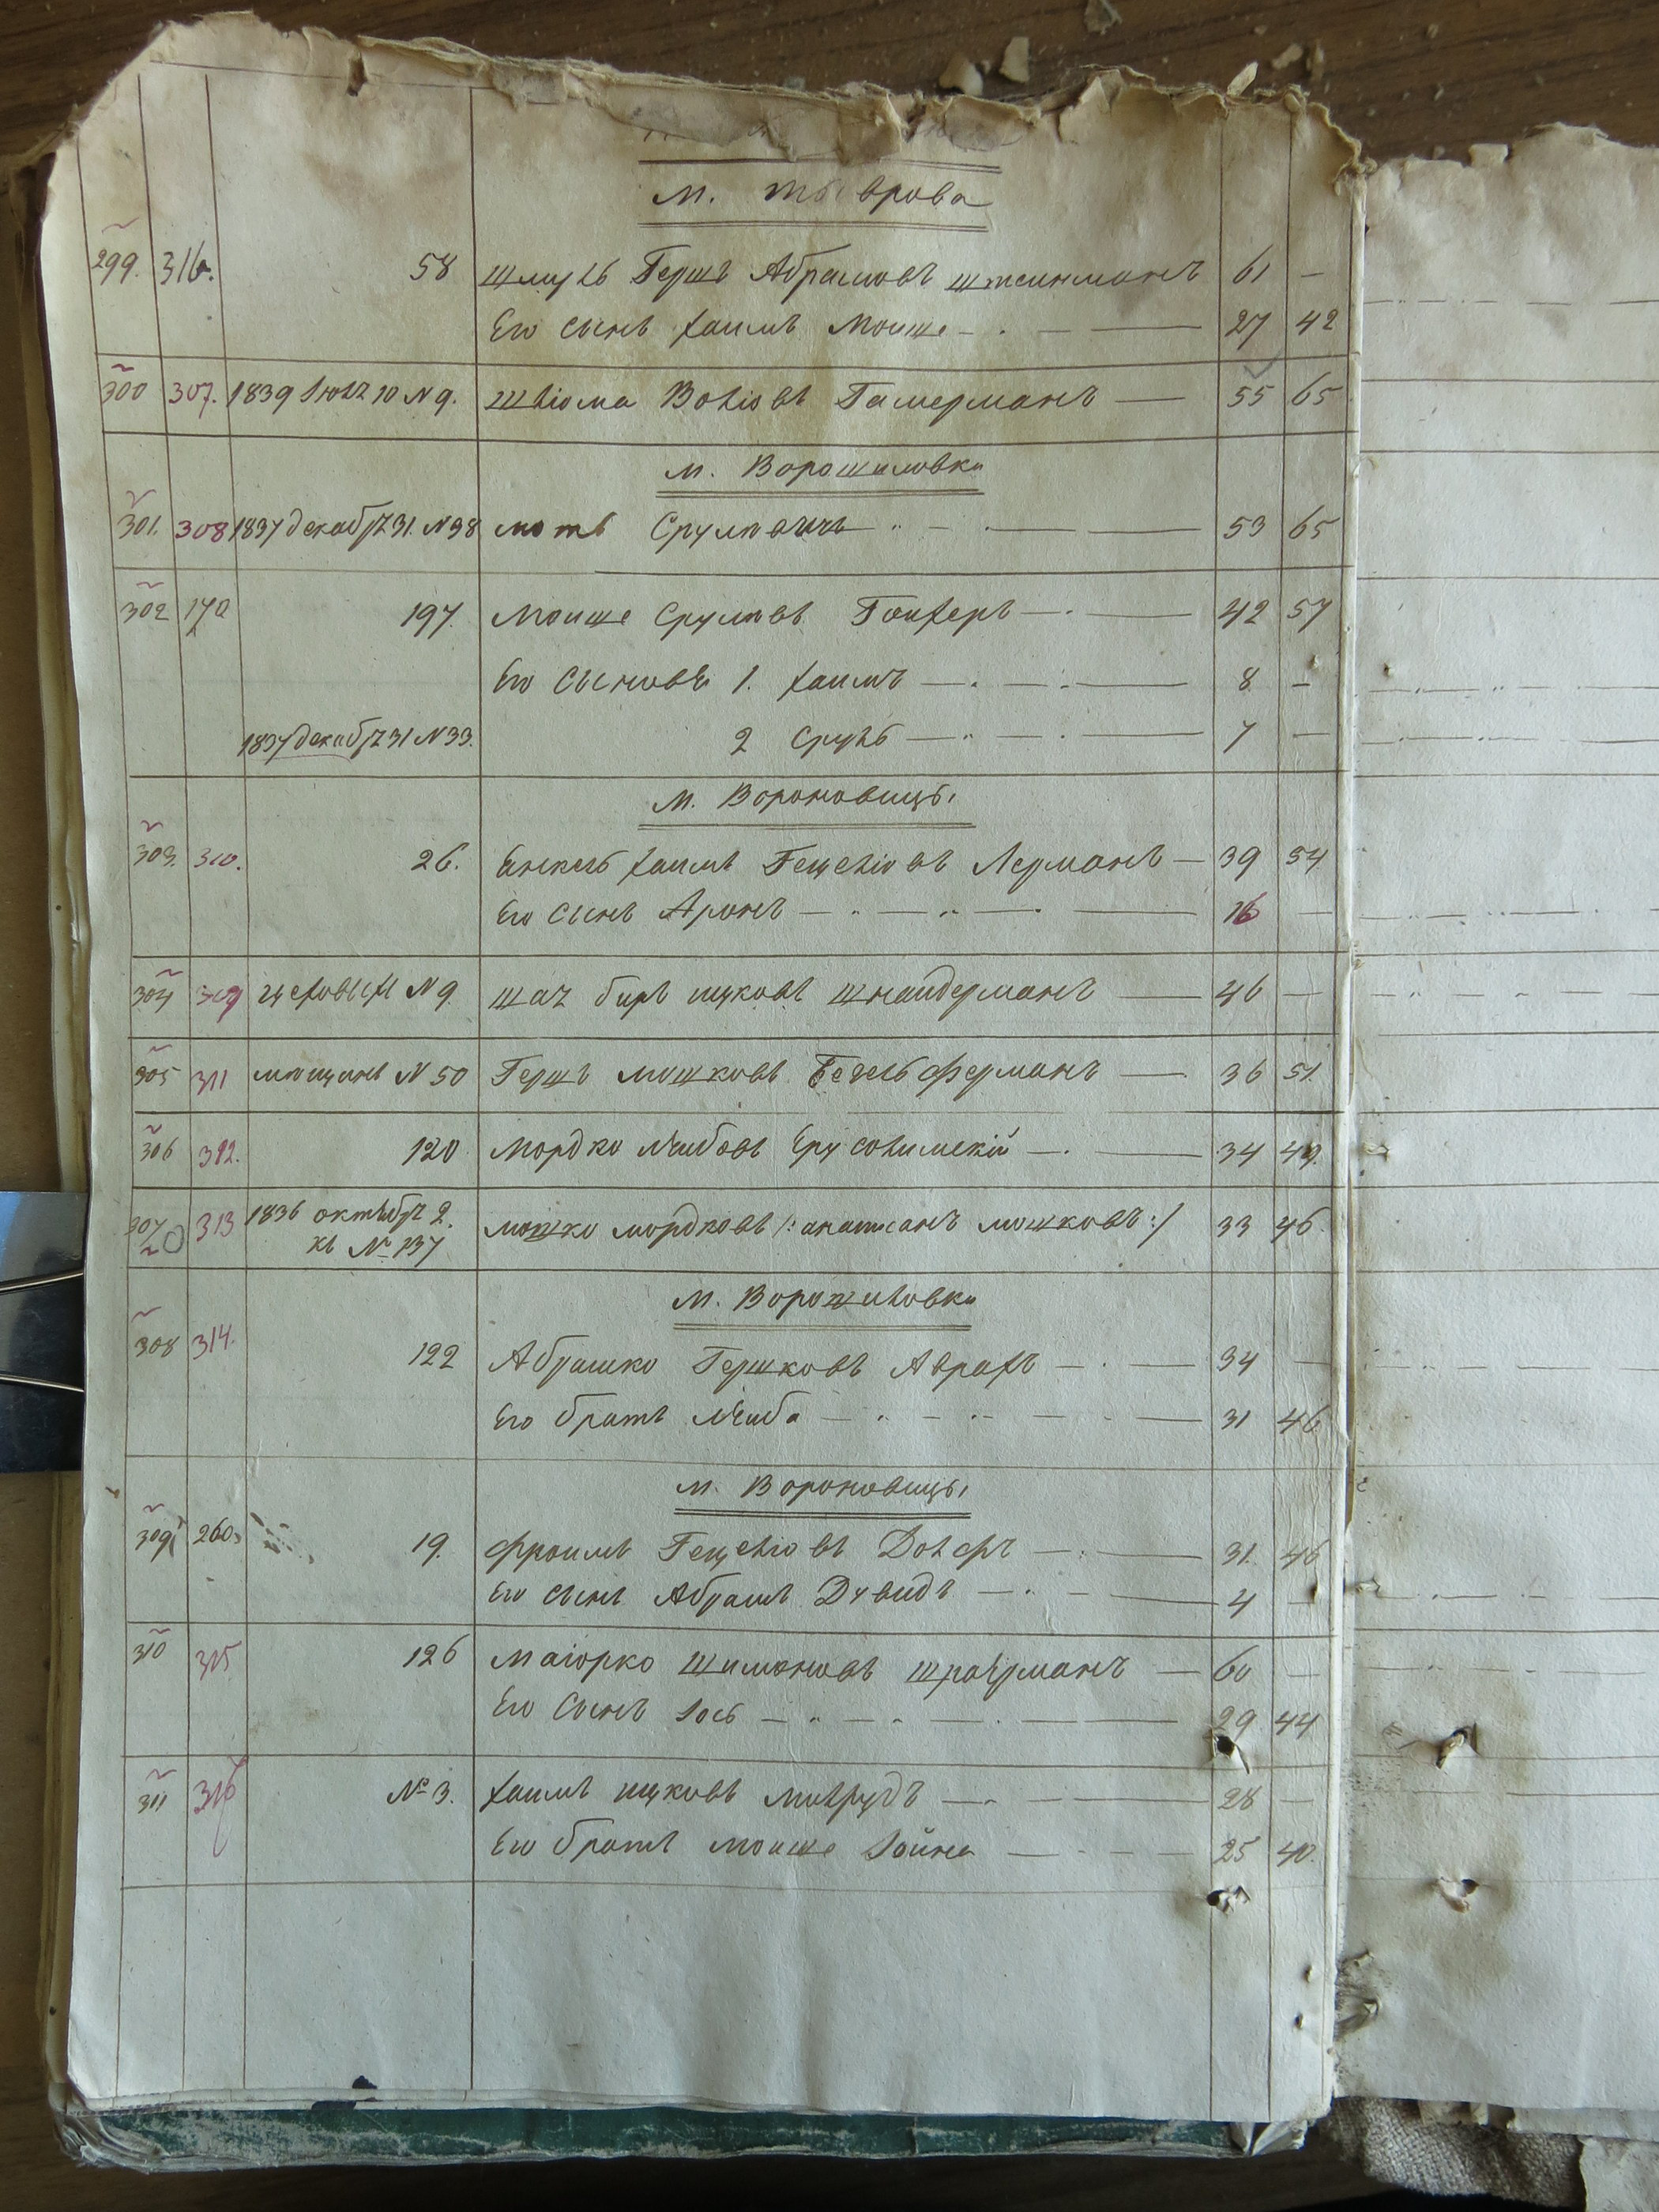 м. Тыврова
299. 316. 58 Шмуль Гершъ Абрамовъ Штейнманъ 61 —
Его сынъ Хаимъ Мошке — 27 42
300 307. 1839 Июля 10 N 9. Шлiома Волiовъ Гамерманъ — 55 65
м. Ворошиловки
301. 308 1837 декабря 31. N 38 Моть Срулевичъ — 53 65
302 170 197. Моише Срулевъ Гонхеръ — 42 57
Его сыновья 1. Хаимъ — 8 —
1837 декабря 31 N 33. 2 Сруль — 7 —
м. Вороновицы
303. 310. 26. Янкель Хаимъ Гецелiовъ Лерманъ — 39 54
Его сынъ Аронъ — 16 —
304 309 цеховыхъ N 9. Шая Биръ Ицковъ Шнайдерманъ — 46 —
305 311 мещанъ N 50 Гершъ Мошковъ Бегельферманъ — 36 51
306 312. 120 Мордко Лейбовъ Ерусолимскiй — 34 49.
307 313 1836 октября 2. Мошко Мордковъ /: аписанъ Мошковъ :/ 33 46.
къ № 137
м. Ворошиловки
308 314. 122 Абрашко Гершковъ Аврахъ — 34 —
Его братъ Лейба — 31 46
м. Вороновицы
309 260. 19. Фроимъ Гецелiовъ Долфъ — 31. 46
Его сынъ Абрамъ Дувидъ — 4 —
310 315. 126 Маiорко Шимоновъ Шраерманъ — 60 —
Его сынъ Iось — 29 44
311 316 № 3. Хаимъ Ицковъ — 28 —
Его братъ Моише Iойна — 25 40.